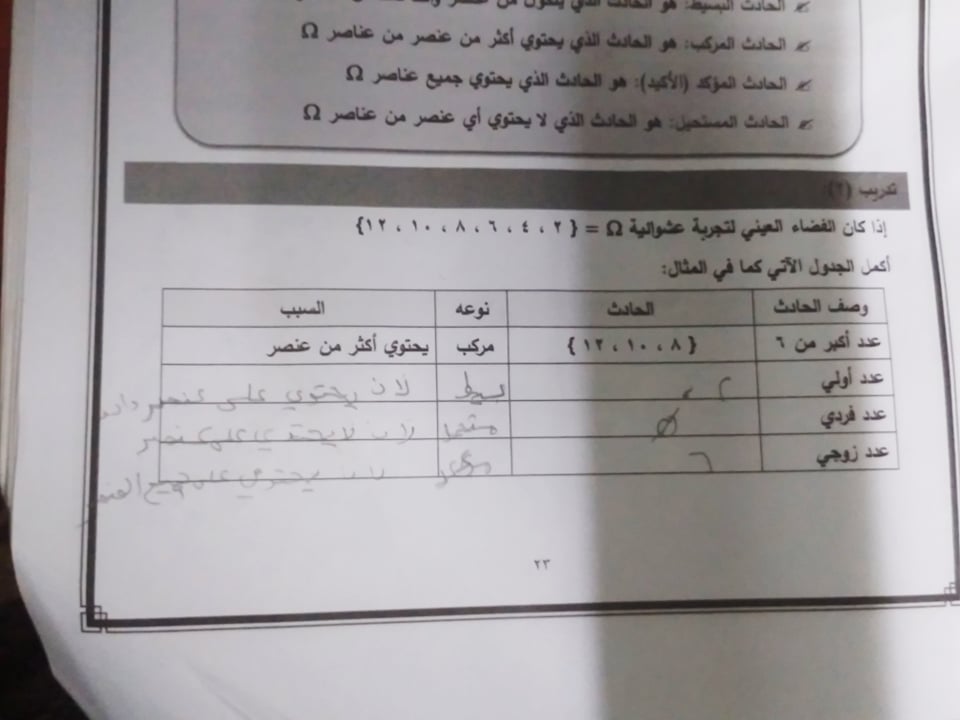 الحادث البسيط: هو الحادث الذي يتكون من عنصر
الحادث المركب: هو الحادث الذي يحتوي أكثر من عنصر من عناصر Ω
الحادث المؤكد (الأكيد): هو الحادث الذي يحتوي جميع عناصر Ω
الحادث المستحيل: هو الحادث الذي لا يحتوي أي عنصر من عناصر Ω
تدريب (٢):
إذا كان الفضاء العيني لتجربة عشوائية Ω = { ٢ ، ٤ ، ٦ ، ٨ ، ١٠ ، ١٢}
أكمل الجدول الآتي كما في المثال:
وصف الحادث الحادث نوعه السبب
عدد أكبر من ٦ { ٨ ، ١٠ ، ١٢ } مركب يحتوي أكثر من عنصر
عدد أولي ٢ بسيط لان يحتوي على عنصر
عدد فردي ∅ لان لا يحتوي على عنصر
عدد زوجي لان يحتوي على جميع
٢٣